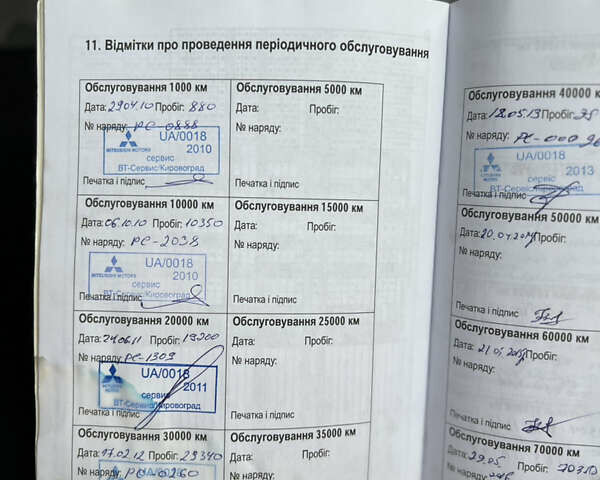 11. Відмітки про проведення періодичного обслуговування
Обслуговування 1000 км
Дата: 29.04.10 Пробіг: 880
№ наряду: РС-0888
UA/0018
2010
MITSUBISHI MOTORS
сервис
ВТ-Сервис/Кировоград
Печатка і підпис
Обслуговування 5000 км
Дата: Пробіг:
№ наряду:
Печатка і підпис
Обслуговування 10000 км
Дата: 06.10.10 Пробіг: 10350
№ наряду: РС-2038
UA/0018
2010
MITSUBISHI MOTORS
сервис
ВТ-Сервис/Кировоград
Печатка і підпис
Обслуговування 15000 км
Дата: Пробіг:
№ наряду:
Печатка і підпис
Обслуговування 20000 км
Дата: 24.06.11 Пробіг: 19200
№ наряду: РС-1309
UA/0018
2011
сервис
ВТ-Сервис/Кировоград
Печатка і підпис
Обслуговування 25000 км
Дата: Пробіг:
№ наряду:
Печатка і підпис
Обслуговування 30000 км
Дата: 17.02.12 Пробіг: 29340
№ наряду: РС-0260
UA/0018
Обслуговування 35000 км
Дата: Пробіг:
№ наряду:
Обслуговування 40000
Дата: 18.05.13 Пробіг:
№ наряду:
UA/0018
2013
сервис
ВТ-Сервис/Кировоград
Печатка і підпис
Обслуговування 50000
Дата: Пробіг:
№ наряду:
Печатка і підпис
Обслуговування 60000
Дата: Пробіг:
№ наряду:
Печатка і підпис
Обслуговування 70000
Дата: 29.05. Пробіг:
№ наряду: